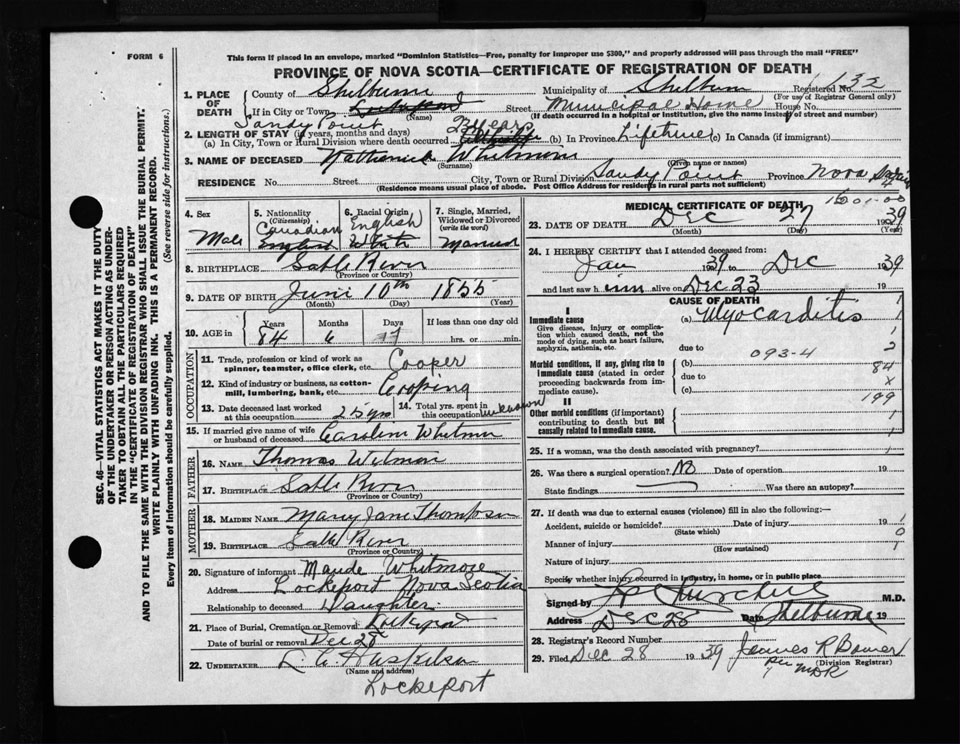 FORM 6
This form if placed in an envelope, marked "Dominion Statistics—Free, penalty for improper use $300," and properly addressed will pass through the mail "FREE"
PROVINCE OF NOVA SCOTIA—CERTIFICATE OF REGISTRATION OF DEATH
1. PLACE OF DEATH
County of Shelburne Municipality of Shelburn Registered No. 132
(For use of Registrar General only)
If in City or Town Lockeport Street Municipal Home House No.
(Name) (If death occurred in a hospital or institution, give the name instead of street and number)
Sandy Point
2. LENGTH OF STAY (if years, months and days)
(a) In City, Town or Rural Division where death occurred 2 years (b) In Province Lifetime (c) In Canada (if immigrant)
3. NAME OF DECEASED Nathaniel Whitmore
(Surname) (Given name or names)
RESIDENCE No. Street City, Town or Rural Division Sandy Point Province Nova Scotia
(Residence means usual place of abode. Post Office Address for residents in rural parts not sufficient)
4. Sex
Male
5. Nationality
(Citizenship)
Canadian
English
6. Racial Origin
English
White
7. Single, Married, Widowed or Divorced
(write the word)
Married
8. BIRTHPLACE Sable River
(Province or Country)
9. DATE OF BIRTH June 10th 1855
(Month) (Day) (Year)
10. AGE in Years Months Days If less than one day old
84 6 17 hrs. or min.
OCCUPATION
11. Trade, profession or kind of work as spinner, teamster, office clerk, etc. Cooper
12. Kind of industry or business, as cotton-mill, lumbering, bank, etc. Cooping
13. Date deceased last worked at this occupation 25 yrs
14. Total yrs. spent in this occupation unknown
15. If married give name of wife or husband of deceased Caroline Whitmore
FATHER
16. NAME Thomas Witmore
17. BIRTHPLACE Sable River
(Province or Country)
MOTHER
18. MAIDEN NAME Mary Jane Thompson
19. BIRTHPLACE Sable River
(Province or Country)
20. Signature of informant Maude Whitmore
Address Lockeport Nova Scotia
Relationship to deceased Daughter
21. Place of Burial, Cremation or Removal Lockeport
Date of burial or removal Dec 28
22. UNDERTAKER
(Name and address)
Lockeport
MEDICAL CERTIFICATE OF DEATH
23. DATE OF DEATH Dec 27 1939
(Month) (Day) (Year)
24. I HEREBY CERTIFY that I attended deceased from:
Jan 1939 to Dec 1939
and last saw him alive on Dec 23
CAUSE OF DEATH
I
Immediate cause
Give disease, injury or complication which caused death, not the mode of dying, such as heart failure, asphyxia, asthenia, etc.
(a) Myocarditis
due to
093-4
Morbid conditions, if any, giving rise to immediate cause (stated in order proceeding backwards from immediate cause).
(b)
due to
(c)
II
Other morbid conditions (if important) contributing to death but not causally related to immediate cause.
1
1
2
84
x
199
1
1
25. If a woman, was the death associated with pregnancy?
26. Was there a surgical operation? No Date of operation 19
State findings Was there an autopsy?
27. If death was due to external causes (violence) fill in also the following:—
Accident, suicide or homicide? Date of injury 19
(State which)
Manner of injury
(How sustained)
Nature of injury
Specify whether injury occurred in industry, in home, or in public place
Signed by M.D.
Address Dec 28 Date Shelburne 19
28. Registrar's Record Number
29. Filed Dec 28 1939 James R Bower
(Division Registrar)
per
SEC. 46—VITAL STATISTICS ACT MAKES IT THE DUTY OF THE UNDERTAKER OR PERSON ACTING AS UNDERTAKER TO OBTAIN ALL THE PARTICULARS REQUIRED IN THE "CERTIFICATE OF REGISTRATION OF DEATH" AND TO FILE THE SAME WITH THE DIVISION REGISTRAR WHO SHALL ISSUE THE BURIAL PERMIT.
WRITE PLAINLY WITH UNFADING INK. THIS IS A PERMANENT RECORD.
Every item of information should be carefully supplied. (See reverse side for instructions.)